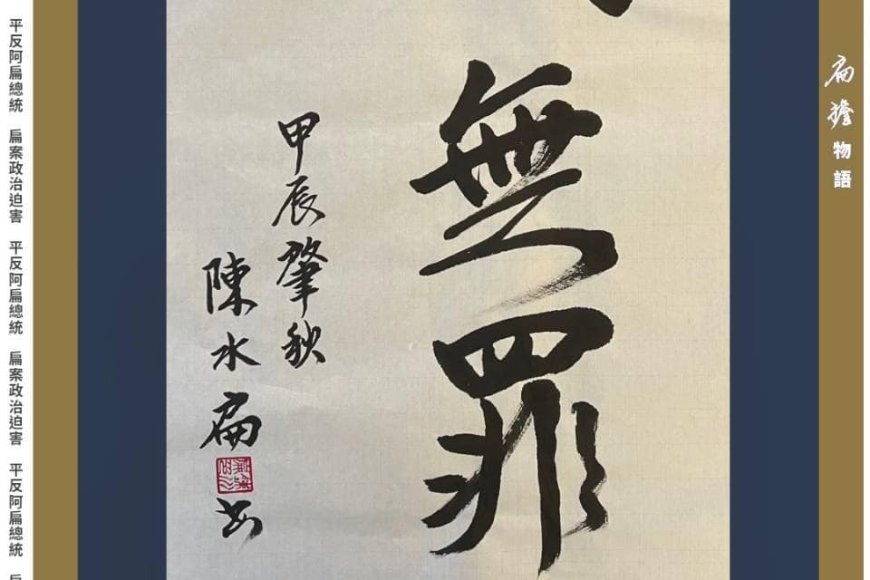 扁擔物語
無罪
甲辰肇秋
陳水扁書
平反阿扁總統 扁案政治迫害 平反阿扁總統 扁案政治迫害 平反阿扁總統